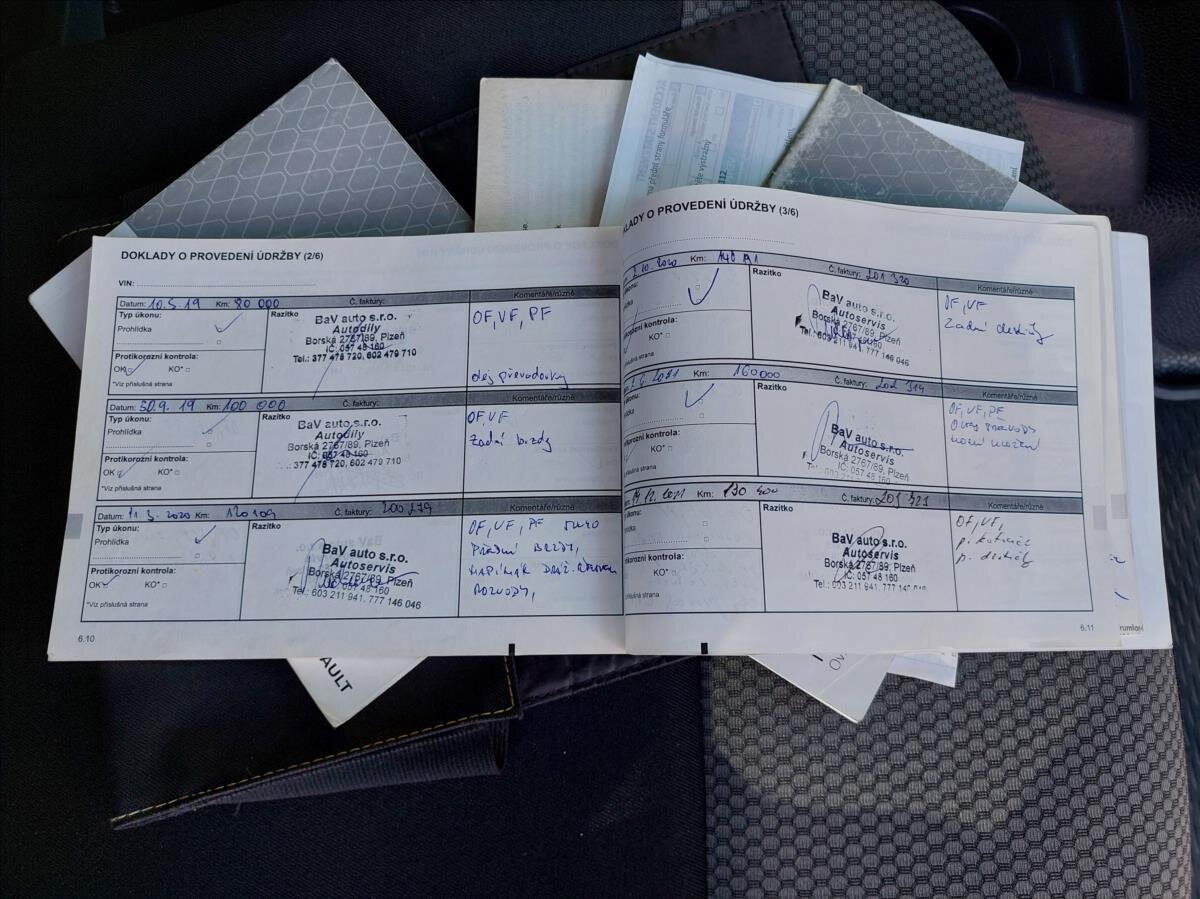 DOKLADY O PROVEDENÍ ÚDRŽBY (2/6)
VIN:
Datum: 10.5.19 Km: 80 000 Č. faktury: Komentáře/různé
Typ úkonu:
Prohlídka
Protikorozní kontrola:
OK KO*
*Viz příslušná strana
Razítko
BaV auto s.r.o.
Autodíly
Borská 2767/89, Plzeň
IČ: 057 48 160
Tel.: 377 478 720, 602 479 710
OF, VF, PF
olej převodovky
Datum: 30.9.19 Km: 100 000 Č. faktury: Komentáře/různé
Typ úkonu:
Prohlídka
Protikorozní kontrola:
OK KO*
*Viz příslušná strana
Razítko
BaV auto s.r.o.
Autodíly
Borská 2767/89, Plzeň
IČ: 057 48 160
377 478 720, 602 479 710
OF, VF
Zadní brzdy
Datum: 11.3.2020 Km: 120 109 Č. faktury: 200 279 Komentáře/různé
Typ úkonu:
Prohlídka
Protikorozní kontrola:
OK KO*
*Viz příslušná strana
Razítko
BaV auto s.r.o.
Autoservis
Borská 2767/89, Plzeň
IČ: 057 48 160
Tel.: 603 211 941, 777 146 046
OF, VF, PF
PŘEDNÍ BRZDY,
ROZVODY,
6.10
KLADY O PROVEDENÍ ÚDRŽBY (3/6)
.10.2020 Km: Č. faktury: 201 320 Komentáře/různé
Razítko
kontrola:
KO*
slušná strana
BaV auto s.r.o.
Autoservis
Borská 2767/89, Plzeň
603 211 941, 777 146 046
OF, VF
Zadní
.6.2021 Km: 160000 Č. faktury: Komentáře/různé
úkonu:
Razítko
kontrola:
KO*
slušná strana
BaV auto s.r.o.
Autoservis
Borská 2767/89, Plzeň
IČ: 057 48 160
OF, VF, PF
.12.2021 Km: Č. faktury: Komentáře/různé
úkonu:
Razítko
otikorozní kontrola:
KO*
příslušná strana
BaV auto s.r.o.
Autoservis
Borská 2767/89, Plzeň
IČ: 057 48 160
Tel.: 603 211 941, 777 146 046
OF, VF,
6.11
AULT